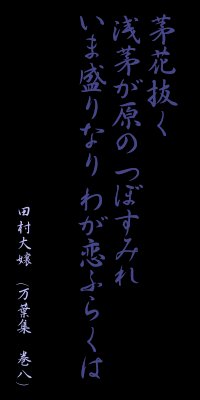 茅花抜く
浅茅が原の つぼすみれ
いま盛りなり わが恋ふらくは
田村大嬢 (万葉集 巻八)